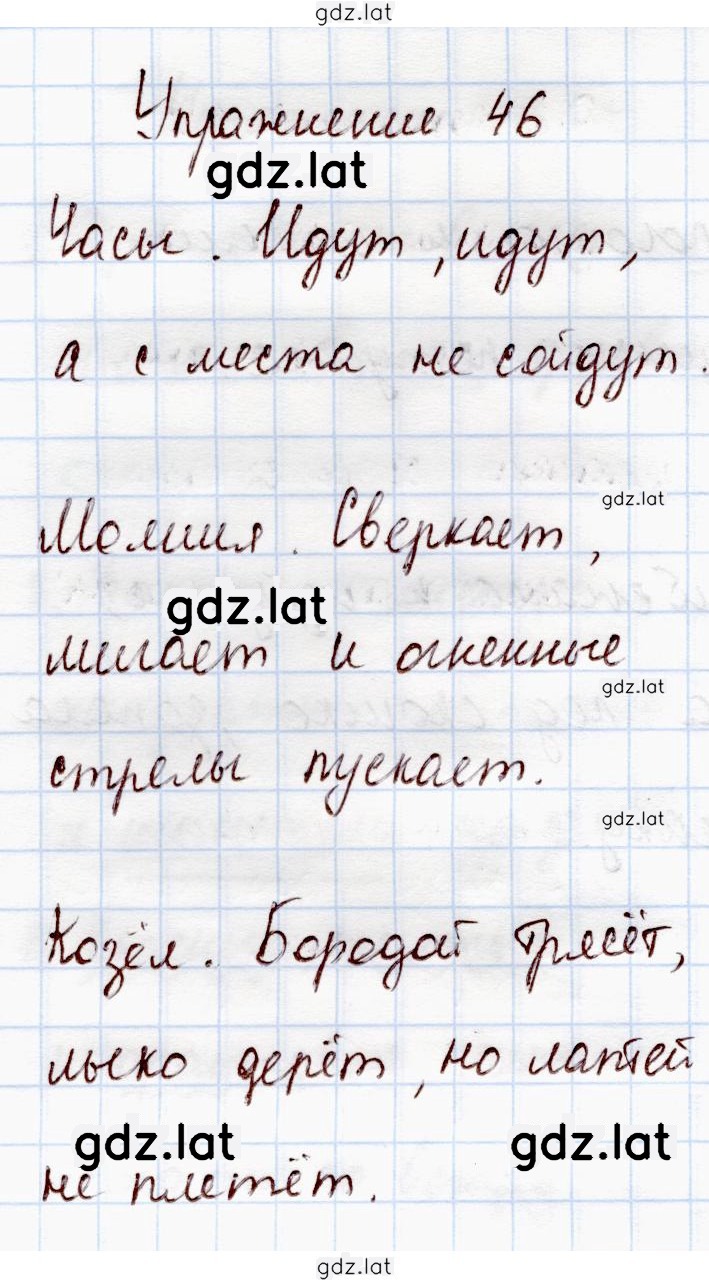 gdz.lat
Упражнение 46
gdz.lat
Часы. Идут, идут,
а с места не сойдут.
gdz.lat
Молния. Сверкает,
gdz.lat
мигает и огненные
gdz.lat
стрелы пускает.
gdz.lat
Козёл. Бородат трясёт,
лыко дерёт, но лаптей
gdz.lat gdz.lat
не плетёт.
gdz.lat